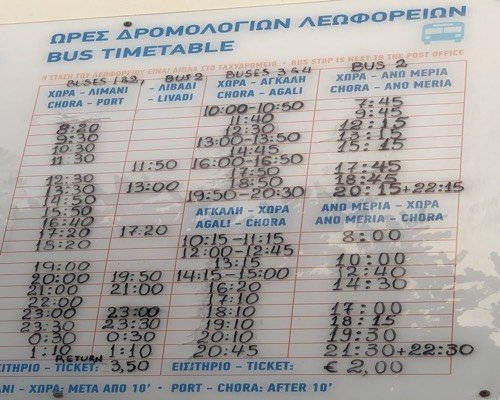 ΩΡΕΣ ΔΡΟΜΟΛΟΓΙΩΝ ΛΕΩΦΟΡΕΙΩΝ
BUS TIMETABLE
Η ΣΤΑΣΗ ΤΟΥ ΛΕΩΦΟΡΕΙΟΥ ΕΙΝΑΙ ΔΙΠΛΑ ΣΤΟ ΤΑΧΥΔΡΟΜΕΙΟ - BUS STOP IS NEXT TO THE POST OFFICE
BUSES 1&2 BUS 2 BUSES 3&4 BUS 2
ΧΩΡΑ - ΛΙΜΑΝΙ - ΛΙΒΑΔΙ ΧΩΡΑ - ΑΓΚΑΛΗ ΧΩΡΑ - ΑΝΩ ΜΕΡΙΑ
CHORA - PORT - LIVADI CHORA - AGALI CHORA - ANO MERIA
10:00-10:50 7:45
11:40 9:45
8:20 12:30 12:15
9:30 13:00-13:50 13:15
10:30 14:45 15:15
11:30 11:50 16:00-16:50
12:30 17:50 17:45
13:30 13:00 18:50 18:45
14:50 19:50-20:30 20:15+22:15
15:50 ΑΓΚΑΛΗ - ΧΩΡΑ ΑΝΩ ΜΕΡΙΑ - ΧΩΡΑ
16:40 AGALI - CHORA ANO MERIA - CHORA
17:20 17:20 10:15-11:15 8:00
18:20 12:00-12:45
19:00 13:15 10:00
20:00 19:50 14:15-15:00 12:40
21:00 21:00 16:20 14:30
22:00 17:10
23:00 23:00 18:10 17:00
23:30 23:30 19:10 18:15
0:30 0:30 20:10 19:30
1:10 1:10 20:45 21:30+22:30
RETURN
ΕΙΣΙΤΗΡΙΟ - TICKET: 3,50 ΕΙΣΙΤΗΡΙΟ - TICKET: € 2,00
ΛΙΜΑΝΙ - ΧΩΡΑ: ΜΕΤΑ ΑΠΟ 10' • PORT - CHORA: AFTER 10'